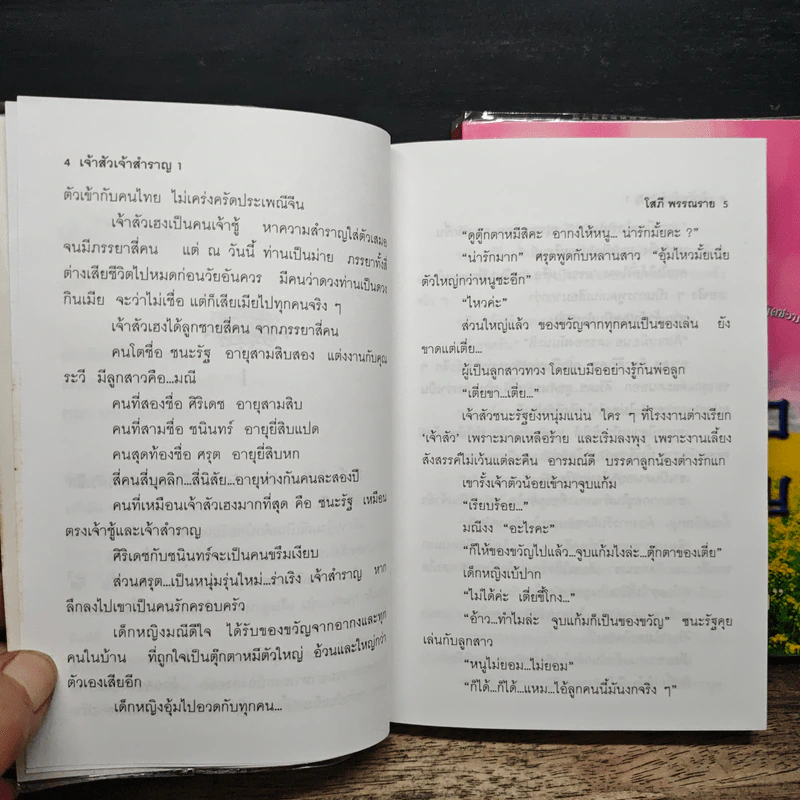 4 เจ้าสัวเจ้าสำราญ 1
ตัวเข้ากับคนไทย ไม่เคร่งครัดประเพณีจีน
เจ้าสัวเฮงเป็นคนเจ้าชู้ หาความสำราญใส่ตัวเสมอ
จนมีภรรยาสี่คน แต่ ณ วันนี้ ท่านเป็นม่าย ภรรยาทั้งสี่
ต่างเสียชีวิตไปหมดก่อนวัยอันควร มีคนว่าดวงท่านเป็นดวง
กินเมีย จะว่าไม่เชื่อ แต่ก็เสียเมียไปทุกคนจริง ๆ
เจ้าสัวเฮงได้ลูกชายสี่คน จากภรรยาสี่คน
คนโตชื่อ ชนะรัฐ อายุสามสิบสอง แต่งงานกับคุณ
ระวี มีลูกสาวคือ...มณี
คนที่สองชื่อ ศิริเดช อายุสามสิบ
คนที่สามชื่อ ชนินทร์ อายุยี่สิบแปด
คนสุดท้องชื่อ ศรุต อายุยี่สิบหก
สี่คนสี่บุคลิก...สี่นิสัย...อายุห่างกันคนละสองปี
คนที่เหมือนเจ้าสัวเฮงมากที่สุด คือ ชนะรัฐ เหมือน
ตรงเจ้าชู้และเจ้าสำราญ
ศิริเดชกับชนินทร์จะเป็นคนขรึมเงียบ
ส่วนศรุต...เป็นหนุ่มรุ่นใหม่...ร่าเริง เจ้าสำราญ หาก
ลึกลงไปเขาเป็นคนรักครอบครัว
เด็กหญิงมณีดีใจ ได้รับของขวัญจากอากงและทุก
คนในบ้าน ที่ถูกใจเป็นตุ๊กตาหมีตัวใหญ่ อ้วนและใหญ่กว่า
ตัวเองเสียอีก
เด็กหญิงอุ้มไปอวดกับทุกคน...
โสภี พรรณราย 5
“ดูตุ๊กตาหมีสิคะ อากงให้หนู... น่ารักมั้ยคะ ?”
“น่ารักมาก” ศรุตพูดกับหลานสาว “อุ้มไหวมั้ยเนี่ย
ตัวใหญ่กว่าหนูซะอีก”
“ไหวค่ะ”
ส่วนใหญ่แล้ว ของขวัญจากทุกคนเป็นของเล่น ยัง
ขาดแต่เตี่ย...
ผู้เป็นลูกสาวทวง โดยแบมืออย่างรู้กันพ่อลูก
“เตี่ยขา...เตี่ย...”
เจ้าสัวชนะรัฐยังหนุ่มแน่น ใคร ๆ ที่โรงงานต่างเรียก
‘เจ้าสัว’ เพราะมาดเหลือร้าย และเริ่มลงพุง เพราะงานเลี้ยง
สังสรรค์ไม่เว้นแต่ละคืน อารมณ์ดี บรรดาลูกน้องต่างรักแก
เขารั้งเจ้าตัวน้อยเข้ามาจูบแก้ม
“เรียบร้อย...”
มณีงง “อะไรคะ”
“ก็ให้ของขวัญไปแล้ว...จูบแก้มไงล่ะ...ตุ๊กตาของเตี่ย”
เด็กหญิงเบ้ปาก
“ไม่ได้ค่ะ เตี่ยขี้โกง...”
“อ้าว...ทำไมล่ะ จูบแก้มก็เป็นของขวัญ” ชนะรัฐคุย
เล่นกับลูกสาว
“หนูไม่ยอม...ไม่ยอม”
“ก็ได้...ก็ได้...แหม...ไอ้ลูกคนนี้มันงกจริง ๆ”